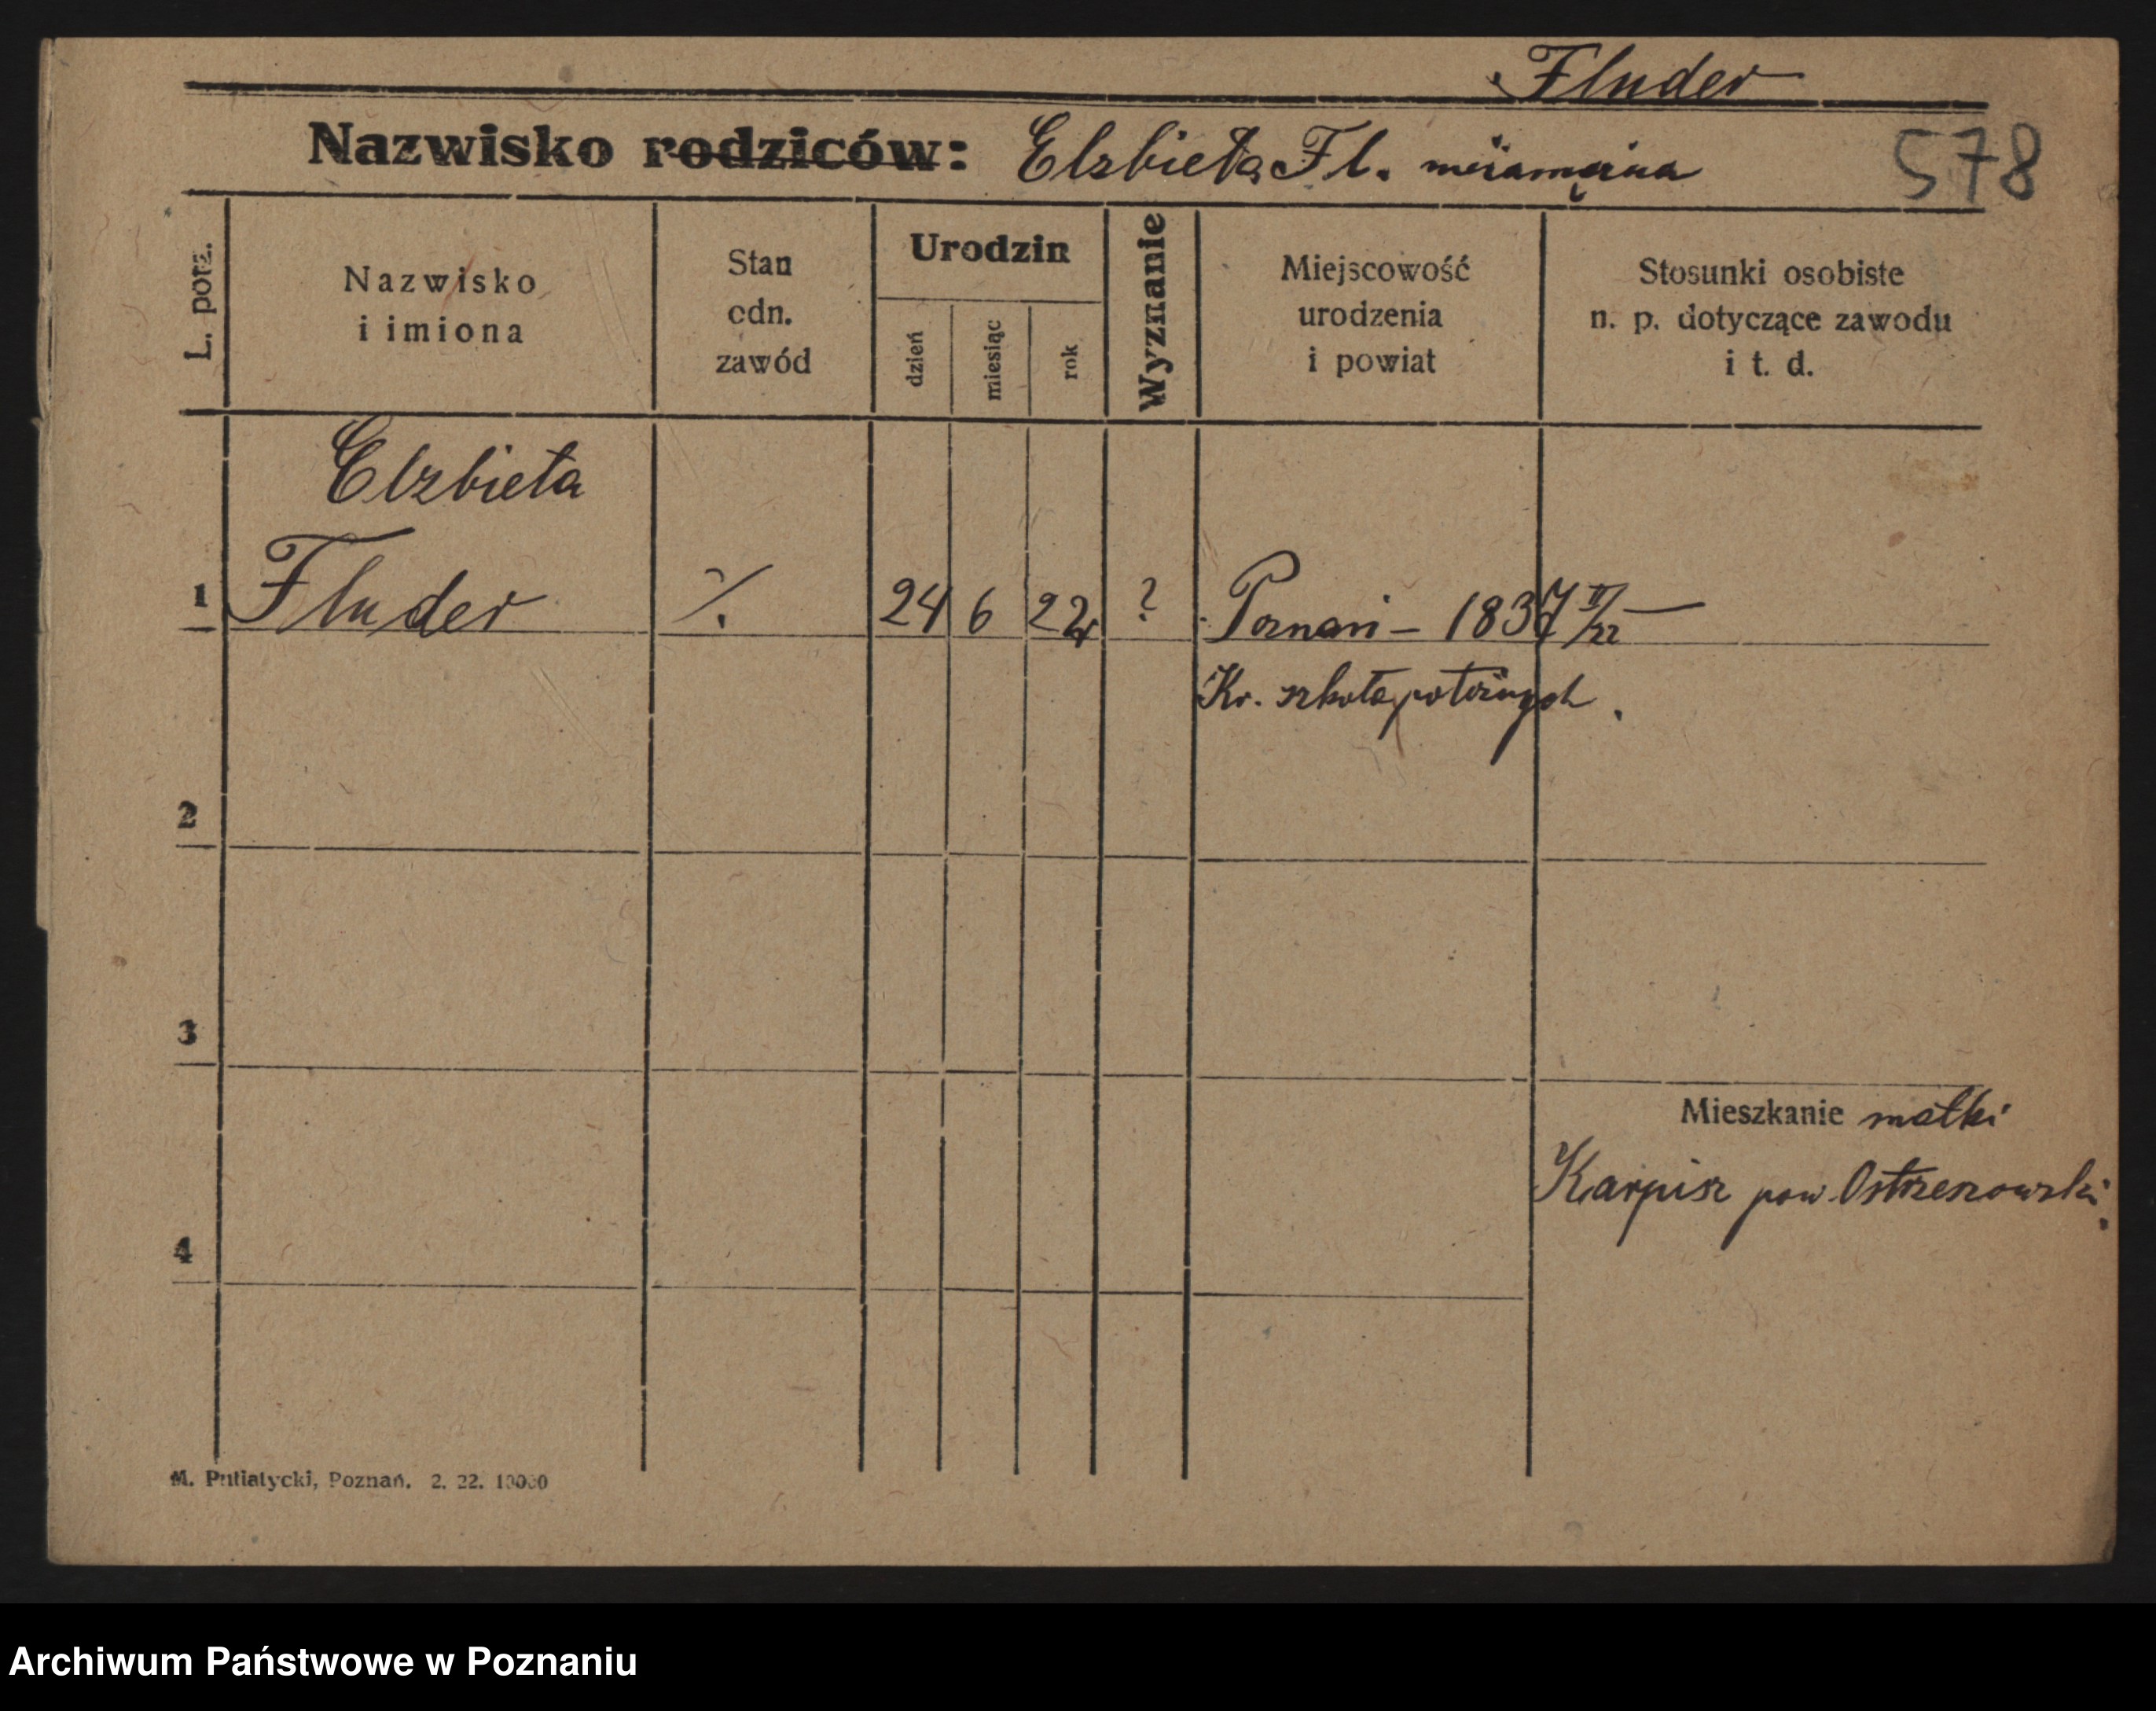 Fluder
Nazwisko rodziców: Elzbieta Fl. niezamężna
578
L. porz.
Nazwisko
i imiona
Stan
odn.
zawód
Urodzin
dzień
miesiąc
rok
Wyznanie
Miejscowość
urodzenia
i powiat
Stosunki osobiste
n. p. dotyczące zawodu
i t. d.
Elzbieta
1 Fluder % 24 6 22 ? Poznań - 1837 II/22 —
Kr. szkoła położnych.
2
3
Mieszkanie matki
Karpisz pow. Ostrzeszowski.
4
M. Putiatycki, Poznań. 2. 22. 10000
Archiwum Państwowe w Poznaniu